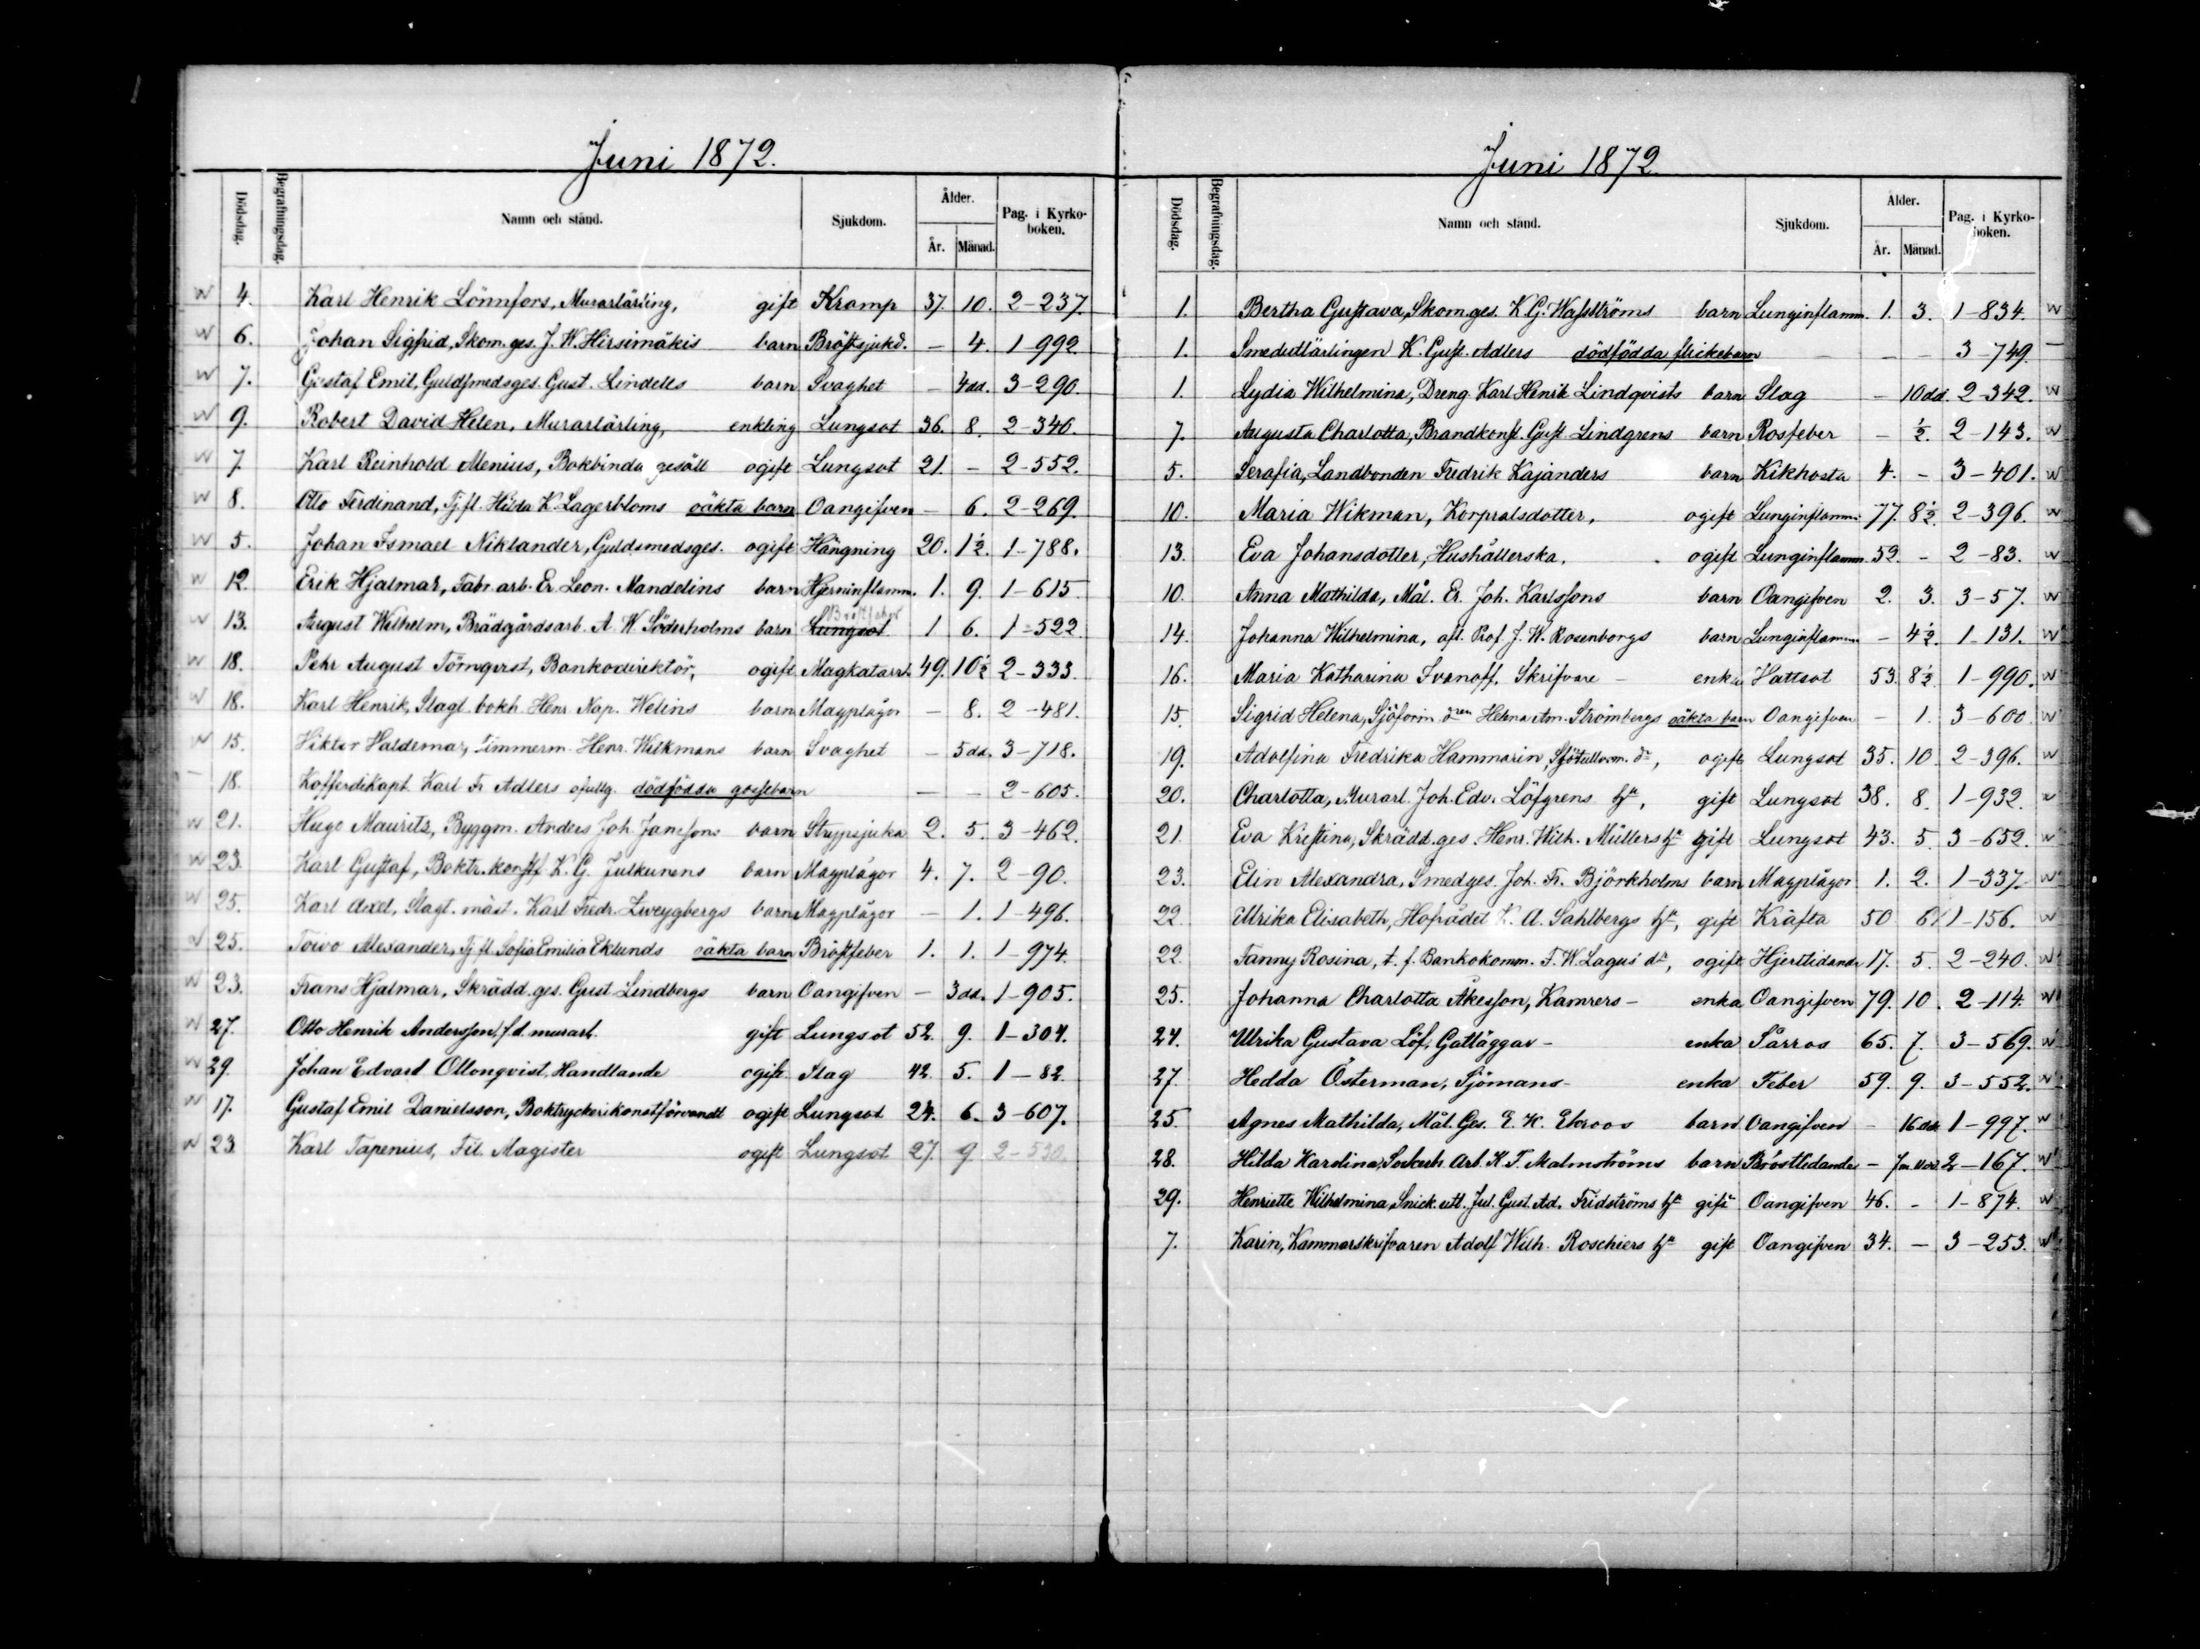 Juni 1872.
Dödsdag. Begrafningsdag. Namn och stånd. Sjukdom. Ålder. År. Månad. Pag. i Kyrkoboken.
4. Karl Henrik Lönnfors, Murarlärling, gift Kramp 37. 10. 2-237.
6. Johan Sigfrid, Skom. ges. J. W. Hirsimäkis barn Bröstsjukd. – 4. 1-992
7. Gustaf Emil, Guldsmedsges. Gust. Lindells barn Svaghet – 4 dd. 3-290.
9. Robert David Helen, Murarlärling, enkling Lungsot 36. 8. 2-340.
7. Karl Reinhold Menius, Bokbinda gesäll ogift Lungsot 21. – 2-552.
8. Otto Ferdinand, Tjfl. Hilda K. Lagerbloms oäkta barn Oangifven – 6. 2-269.
5. Johan Ismael Niklander, Guldsmedsges. ogift Hängning 20. 1½. 1-788.
12. Erik Hjalmar, Fabr. arb. Er. Leon. Mandelins barn Hjerninflamm. 1. 9. 1-615
13. August Wilhelm, Brädgårdsarb. A. W. Söderholms barn Lungsot 1 6. 1-522
18. Pehr August Törnqvist, Bankodirektör, ogift Magkatarrh. 49. 10½ 2-333.
18. Karl Henrik, Slagt. bokh. Henr. Nap. Welins barn Magplågor – 8. 2-481.
15. Viktor Valdemar, Timmerm. Henr. Wilkmans barn Svaghet – 5 dd. 3-718.
18. Kofferdikapt. Karl Fr. Adlers ofullg. dödfödda gossebarn – – 2-605.
21. Hugo Mauritz, Byggm. Anders Joh. Janssons barn Strypsjuka 2. 5. 3-462.
23. Karl Gustaf, Boktr. konstf. K. G. Julkunens barn Magplågor 4. 7. 2-90.
25. Karl Axel, Slagt. mäst. Karl Fredr. Zweygbergs barn Magplågor – 1. 1-496.
25. Toivo Alexander, Tj fl. Sofia Emilia Eklunds oäkta barn Bröstfeber 1. 1. 1-974
23. Frans Hjalmar, Skrädd. ges. Gust. Lindbergs barn Oangifven – 3 dd. 1-905.
27. Otto Henrik Andersson, f.d. murarl. gift Lungsot 52. 9. 1-304.
29. Johan Edvard Ollonqvist, Handlande ogift Slag 42. 5. 1-82.
17. Gustaf Emil Danielsson, Boktryckerikonstförvandt ogift Lungsot 24. 6. 3-607.
23. Karl Tapenius, Fil. Magister ogift Lungsot 27. 9 2-530.
Juni 1872
Dödsdag. Begrafningsdag. Namn och stånd. Sjukdom. Ålder. År. Månad. Pag. i Kyrkoboken.
1. Bertha Gustava, Skom.ges. K. G. Wasströms barn Lunginflamm. 1. 3. 1-834.
1. Smedsllärlingen K. Gust. Adlers dödfödda flickebarn – – 3-749.
1. Lydia Wilhelmina, Dreng. Karl Henrik Lindqvists barn Slag – 10 dd. 2-342.
7. Augusta Charlotta, Brandkonst. Gust. Lindgrens barn Rosfeber – ½. 2-143.
5. Serafia, Landbonden Fredrik Kajanders barn Kikhosta 4. – 3-401.
10. Maria Wikman, Korpralsdotter, ogift Lunginflamm. 77. 8½. 2-396.
13. Eva Johansdotter, Hushållerska, ogift Lunginflamm. 52. – 2-83.
10. Anna Mathilda, Mål. Er. Joh. Karlssons barn Oangifven 2. 3. 3-57.
14. Johanna Wilhelmina, afl. Prof. J. W. Rosenborgs barn Lunginflamm. – 4½. 1-131.
16. Maria Katharina Ivanoff, Skrifvare – enka Vattsot 53. 8½ 1-990.
15. Sigrid Helena, Sjöform. dren Helena Am. Strömbergs oäkta barn Oangifven – 1. 3-600
19. Adolfina Fredrika Hammarin, Sjötullvm. dr, ogift Lungsot 35. 10. 2-396.
20. Charlotta, Murarl. Joh. Edv. Löfgrens hu, gift Lungsot 38. 8. 1-932.
21. Eva Kristina, Skrädd. ges. Henr. Wilh. Müllers hu gift Lungsot 43. 5. 3-652.
23. Elin Alexandra, Smedges. Joh. Fr. Björkholms barn Magplågor 1. 2. 1-337.
22 Ulrika Elisabeth, Hofrådet K. A. Sahlbergs hu, gift Kräfta 50 6 1-156.
22 Fanny Rosina, t. f. Bankokomm. F. W. Lagus' dr, ogift Hjertlidande 17. 5. 2-240.
25. Johanna Charlotta Åkesson, Kamrers – enka Oangifven 79. 10. 2-114.
24. Ulrika Gustava Löf, Gatläggar – enka Sårros 65. 7. 3-569.
27. Hedda Österman, Sjömans – enka Feber 59. 9. 3-552.
25. Agnes Mathilda, Mål. Ges. E. H. Ekroos barn Oangifven – 16 dd. 1-997.
28. Hilda Karolina, Sockerb. Arb. K. F. Malmströms barn Bröstlidande – 2-167.
29. Henriette Wilhelmina, Snick. utl. Jul. Gust. Ad. Fridströms hu gift Oangifven 46. – 1-874.
7. Karin, Kammarskrifvaren Adolf Wilh. Roschiers hu gift Oangifven 34. – 3-253.